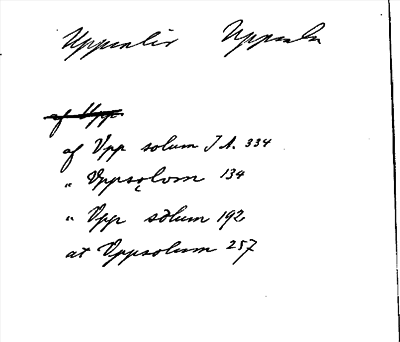 Uppsalir Uppsala
af Upp
af Vpp solum J A. 334
" Vppsǫlom 134
" Vpp sòlum 192
at Vppsolum 257